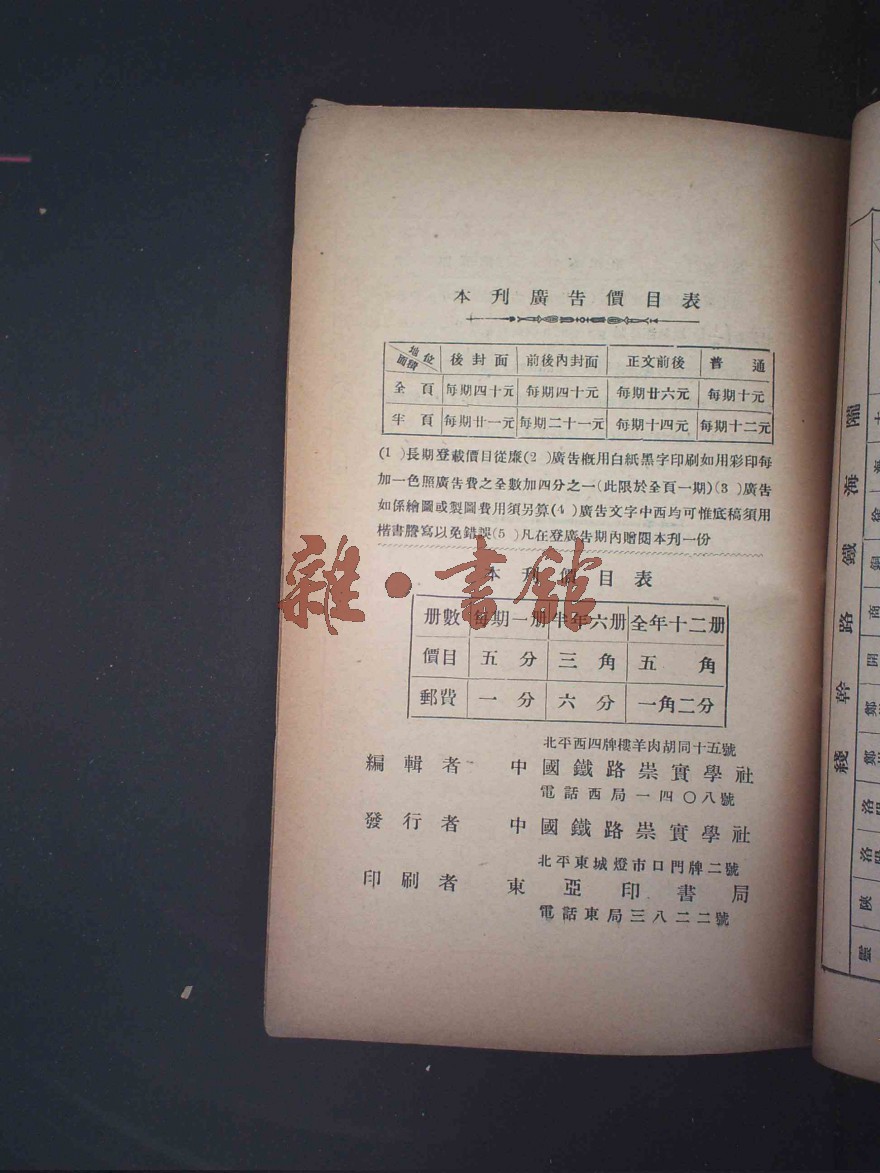 本刊廣告價目表
地位 面積 後封面 前後內封面 正文前後 普通
全頁 每期四十元 每期四十元 每期廿六元 每期十元
半頁 每期廿一元 每期二十一元 每期十四元 每期十二元
(1)長期登載價目從廉(2)廣告概用白紙黑字印刷如用彩印每
加一色照廣告費之全數加四分之一(此限於全頁一期)(3)廣告
如係繪圖或製圖費用須另算(4)廣告文字中西均可惟底稿須用
楷書謄寫以免錯誤(5)凡在登廣告期內贈閱本刊一份
雜·書館
本刊價目表
册數 每期一册 半年六册 全年十二册
價目 五分 三角 五角
郵費 一分 六分 一角二分
北平西四牌樓羊肉胡同十五號
編輯者 中國鐵路崇實學社
電話西局一四〇八號
發行者 中國鐵路崇實學社
北平東城燈市口門牌二號
印刷者 東亞印書局
電話東局三八二二號
隴海鐵路幹綫